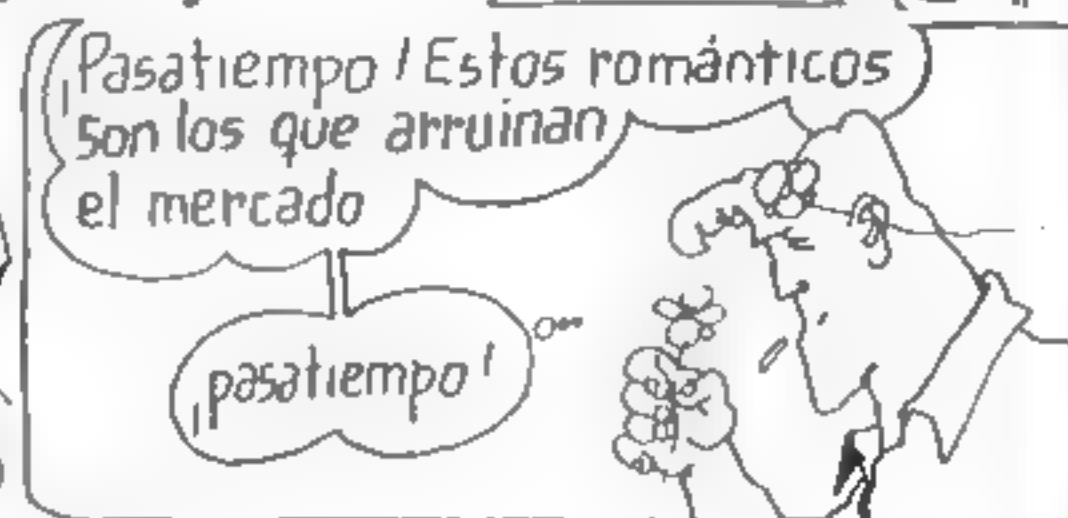 ¡Pasatiempo! Estos románticos
son los que arruinan
el mercado
¡pasatiempo!